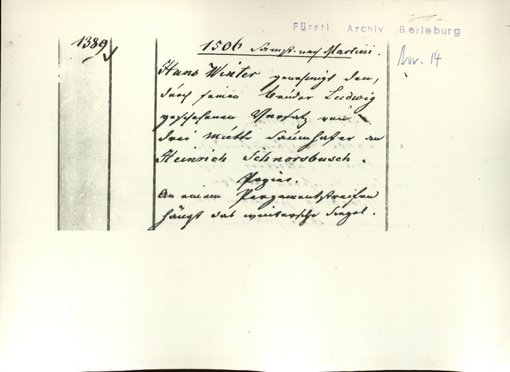 Fürstl. Archiv Berleburg
1389
1506 Samst. nach Martini.
Nov. 14
Hans Winter genehmigt den,
durch seinen Bruder Ludwig
geschehenen Versatz von
drei Mütte Saumhafer an
Heinrich Schnorsbusch.
Papier.
An einem Pergamentstreifen
hängt das winter'sche Siegel.